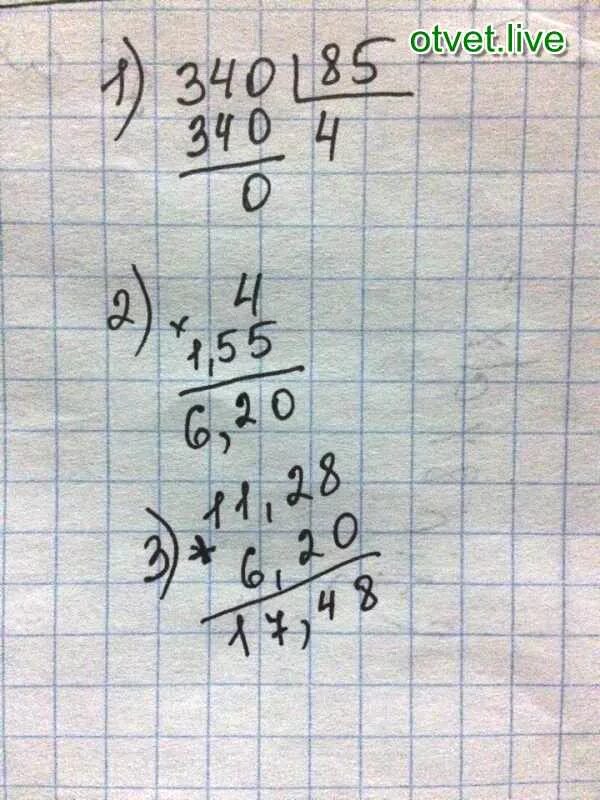 otvet.live
1) 340 85
340 4
0
2) 4
× 1,55
6,20
11,28
3) * 6,20
17,48